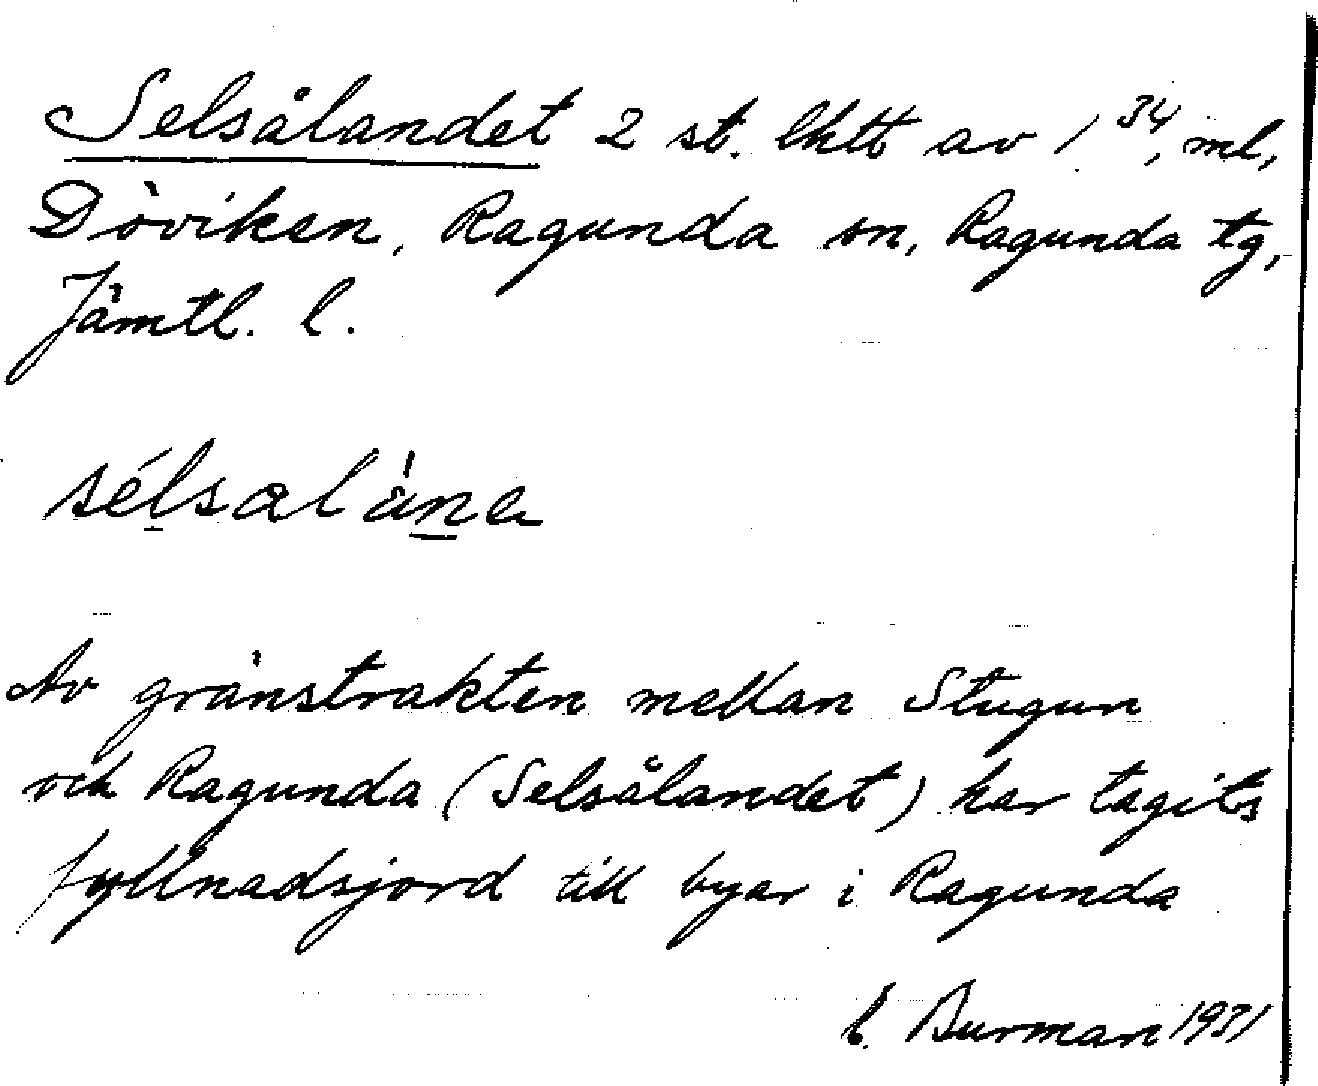 Selsålandet 2 st. lhtt av 1³⁴, ml,
Döviken, Ragunda sn, Ragunda tg,
Jämtl. l.
Av gränstrakten mellan Stugun
och Ragunda (Selsålandet) har tagits
fyllnadsjord till byar i Ragunda
Burman 1931